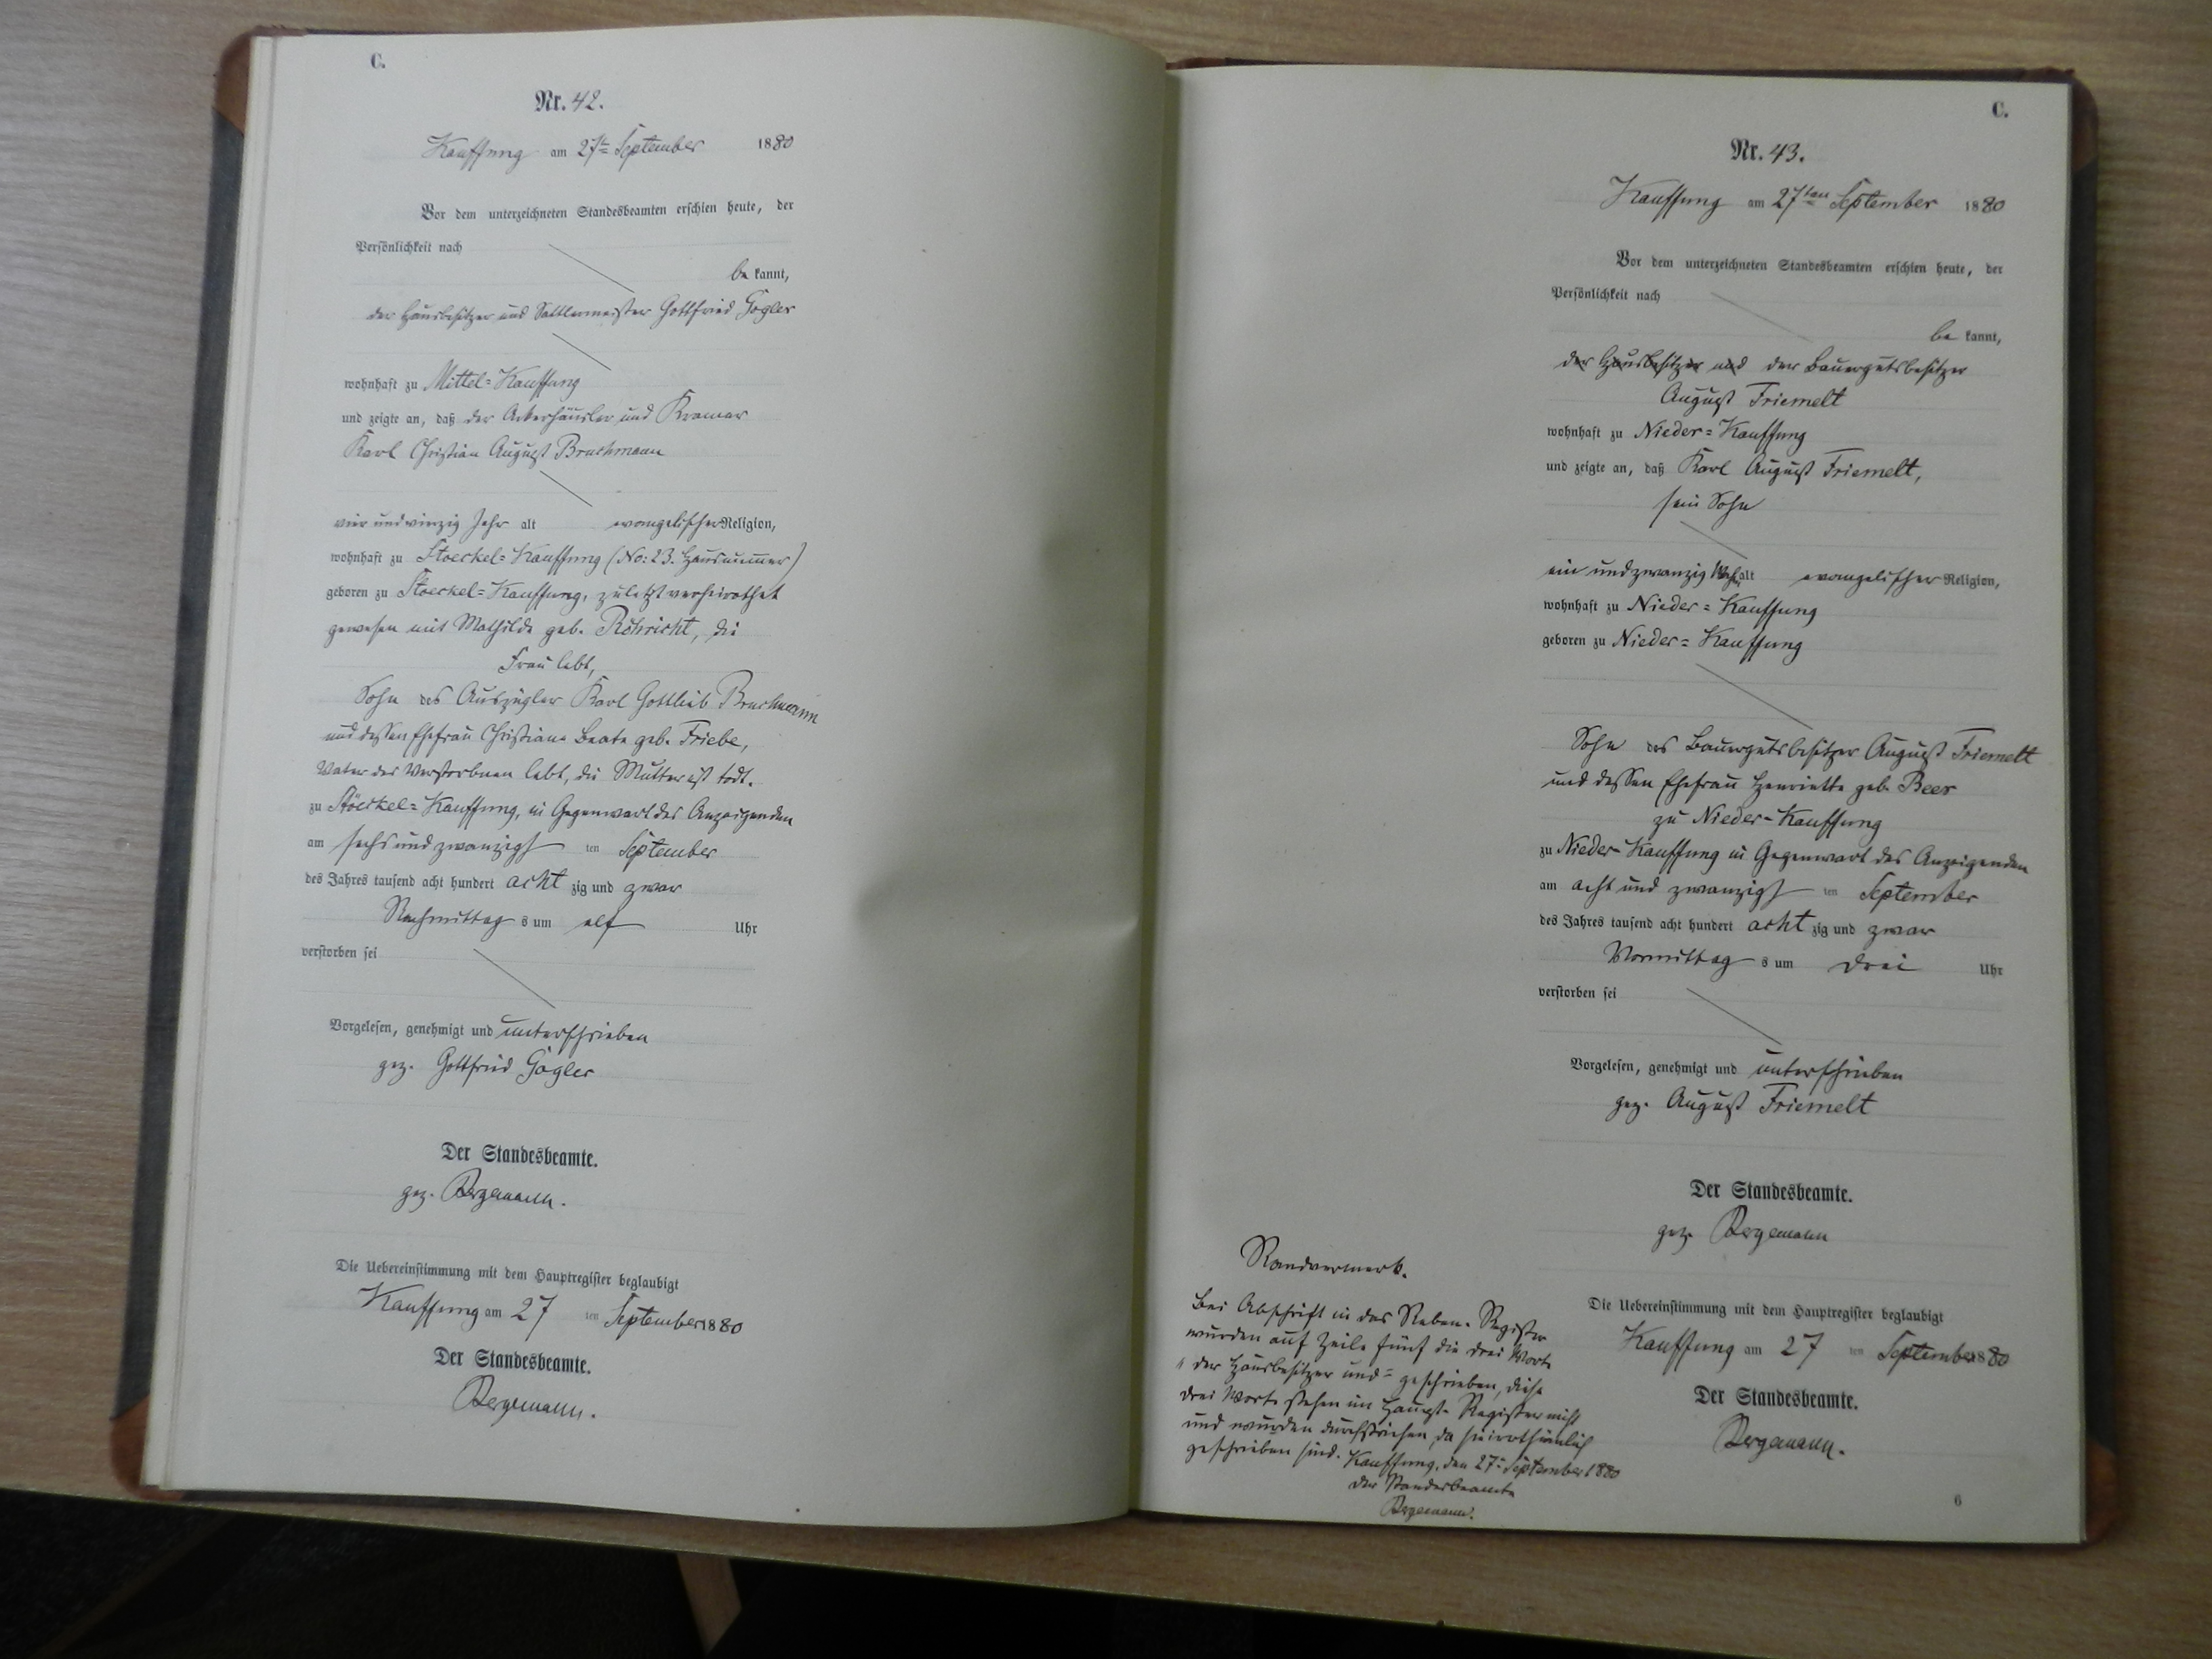 C.
Nr. 42.
Kauffung am 27te September 1880
Vor dem unterzeichneten Standesbeamten erschien heute, der
Persönlichkeit nach
be kannt,
der Hausbesitzer und Sattlermeister Gottfried Gögler
wohnhaft zu Mittel=Kauffung
und zeigte an, daß der Ackerhäusler und Kramer
Karl Christian August Bruchmann
vier und vierzig Jahr alt evangelischer Religion,
wohnhaft zu Stoeckel=Kauffung (No: 23. Hausnummer)
geboren zu Stoeckel=Kauffung, zuletzt verheirathet
gewesen mit Mathilde geb. Röhricht, die
Frau lebt,
Sohn des Auszügler Karl Gottlieb Bruchmann
und dessen Ehefrau Christiane Beate geb. Friebe,
Vater des Verstorbnen lebt, die Mutter ist todt.
zu Stöeckel=Kauffung, in Gegenwart des Anzeigenden
am sechs und zwanzigs ten September
des Jahres tausend acht hundert acht zig und zwar
Nachmittag s um elf Uhr
verstorben sei
Vorgelesen, genehmigt und unterschrieben
gez. Gottfried Gögler
Der Standesbeamte.
gez. Bergemann.
Die Uebereinstimmung mit dem Hauptregister beglaubigt
Kauffung am 27 ten September 1880
Der Standesbeamte.
Bergemann.
C.
Nr. 43.
Kauffung am 27ten September 1880
Vor dem unterzeichneten Standesbeamten erschien heute, der
Persönlichkeit nach
be kannt,
der Hausbesitzer und der Bauergutsbesitzer
August Friemelt
wohnhaft zu Nieder=Kauffung
und zeigte an, daß Karl August Friemelt,
sein Sohn
ein und zwanzig Woch. alt evangelischer Religion,
wohnhaft zu Nieder=Kauffung
geboren zu Nieder=Kauffung
Sohn des Bauergutsbesitzer August Friemelt
und dessen Ehefrau Henriette geb. Beer
zu Nieder-Kauffung
zu Nieder-Kauffung in Gegenwart des Anzeigenden
am acht und zwanzigs ten September
des Jahres tausend acht hundert acht zig und zwar
Vormittag s um drei Uhr
verstorben sei
Vorgelesen, genehmigt und unterschrieben
gez. August Friemelt
Der Standesbeamte.
gez. Bergemann
Die Uebereinstimmung mit dem Hauptregister beglaubigt
Kauffung am 27 ten September 1880
Der Standesbeamte.
Bergemann.
6
Randvermerk.
Bei Abschrift in das Neben-Register
wurden auf Zeile fünf die drei Worte
"der Hausbesitzer und" geschrieben, diese
drei Worte stehen im Haupt-Register nicht
und wurden durchstrichen, da sie irrthümlich
geschrieben sind. Kauffung, den 27. September 1880
der Standesbeamte
Bergemann.